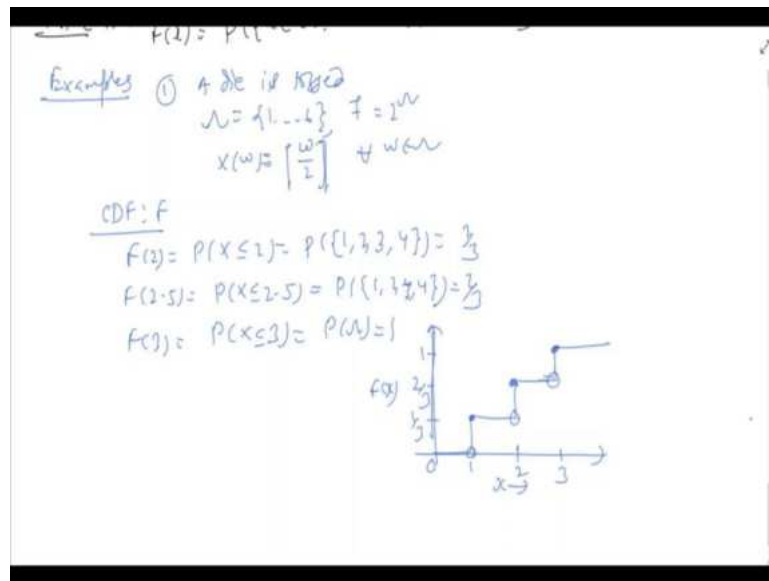 F(2) = P(
Examples ① A die is tossed
Ω = {1...6} F = 2^Ω
X(ω) = ⌈ω/2⌉ ∀ ω∈Ω
CDF: F
F(2) = P(X ≤ 2) = P({1, 2, 3, 4}) = 2/3
F(2.5) = P(X ≤ 2.5) = P({1, 2, 3, 4}) = 2/3
F(3) = P(X ≤ 3) = P(Ω) = 1
1
F(x) 2/3
1/3
0 1 2 3
x →